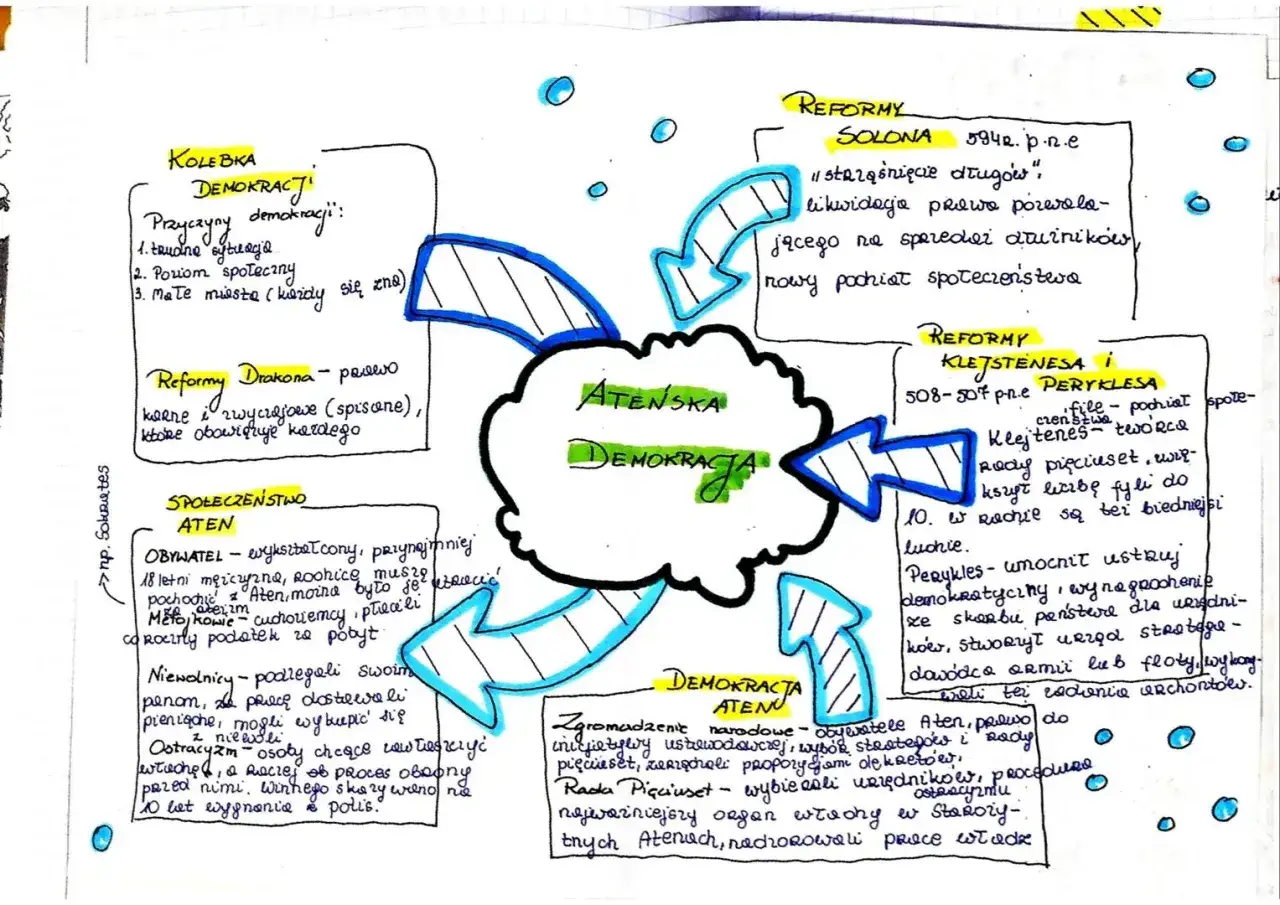 KOLEBKA
DEMOKRACJI
Przyczyny demokracji:
1. trudna sytuacja
2. Poziom społeczny
3. Małe miasta (każdy się zna)
Reformy Drakona – prawo
karne i zwyczajowe (spisane),
które obowiązuje każdego
SPOŁECZEŃSTWO
ATEN
OBYWATEL – wykształcony, przynajmniej
18 letni mężczyzna, rodzice muszą
pochodzić z Aten, można było je utracić
za ateizm
-> np. Sokrates
Metojkowie – cudzoziemcy, płacili
coroczny podatek za pobyt
Niewolnicy – podlegali swoim
panom, za pracę dostawali
pieniądze, mogli wykupić się
z niewoli
Ostracyzm – osoby chcące zawłaszczyć
władzę, a raczej proces obrony
przed nimi. Winnego skazywano na
10 lat wygnania z polis.
ATEŃSKA
DEMOKRACJA
REFORMY
SOLONA 594r. p.n.e
„strząśnięcie długów",
likwidacja prawa pozwala-
jącego na sprzedaż dłużników,
nowy podział społeczeństwa
REFORMY
KLEJSTENESA i
PERYKLESA
508-507 p.n.e
file – podział społe-
czeństwa
Klejtenes – twórca
rady pięciuset, zwię-
kszył liczbę fyli do
10. w radzie są też biedniejsi
ludzie.
Perykles – umocnił ustruj
demokratyczny, wynagrodzenie
ze skarbu państwa dla urzędni-
ków, stworzył urząd stratega –
dowódca armii lub floty, wykony-
wali też zadania archontów.
DEMOKRACJA
ATEN
Zgromadzenie narodowe – obywatele Aten, prawo do
inicjatywy ustawodawczej, wybór strategów i Rady
pięciuset, zarządzali propozycjami dekretów,
Rada Pięciuset – wybierali urzędników, procedura
ostracyzmu
najważniejszy organ władzy w Staroży-
tnych Atenach, nadzorowali pracę władz